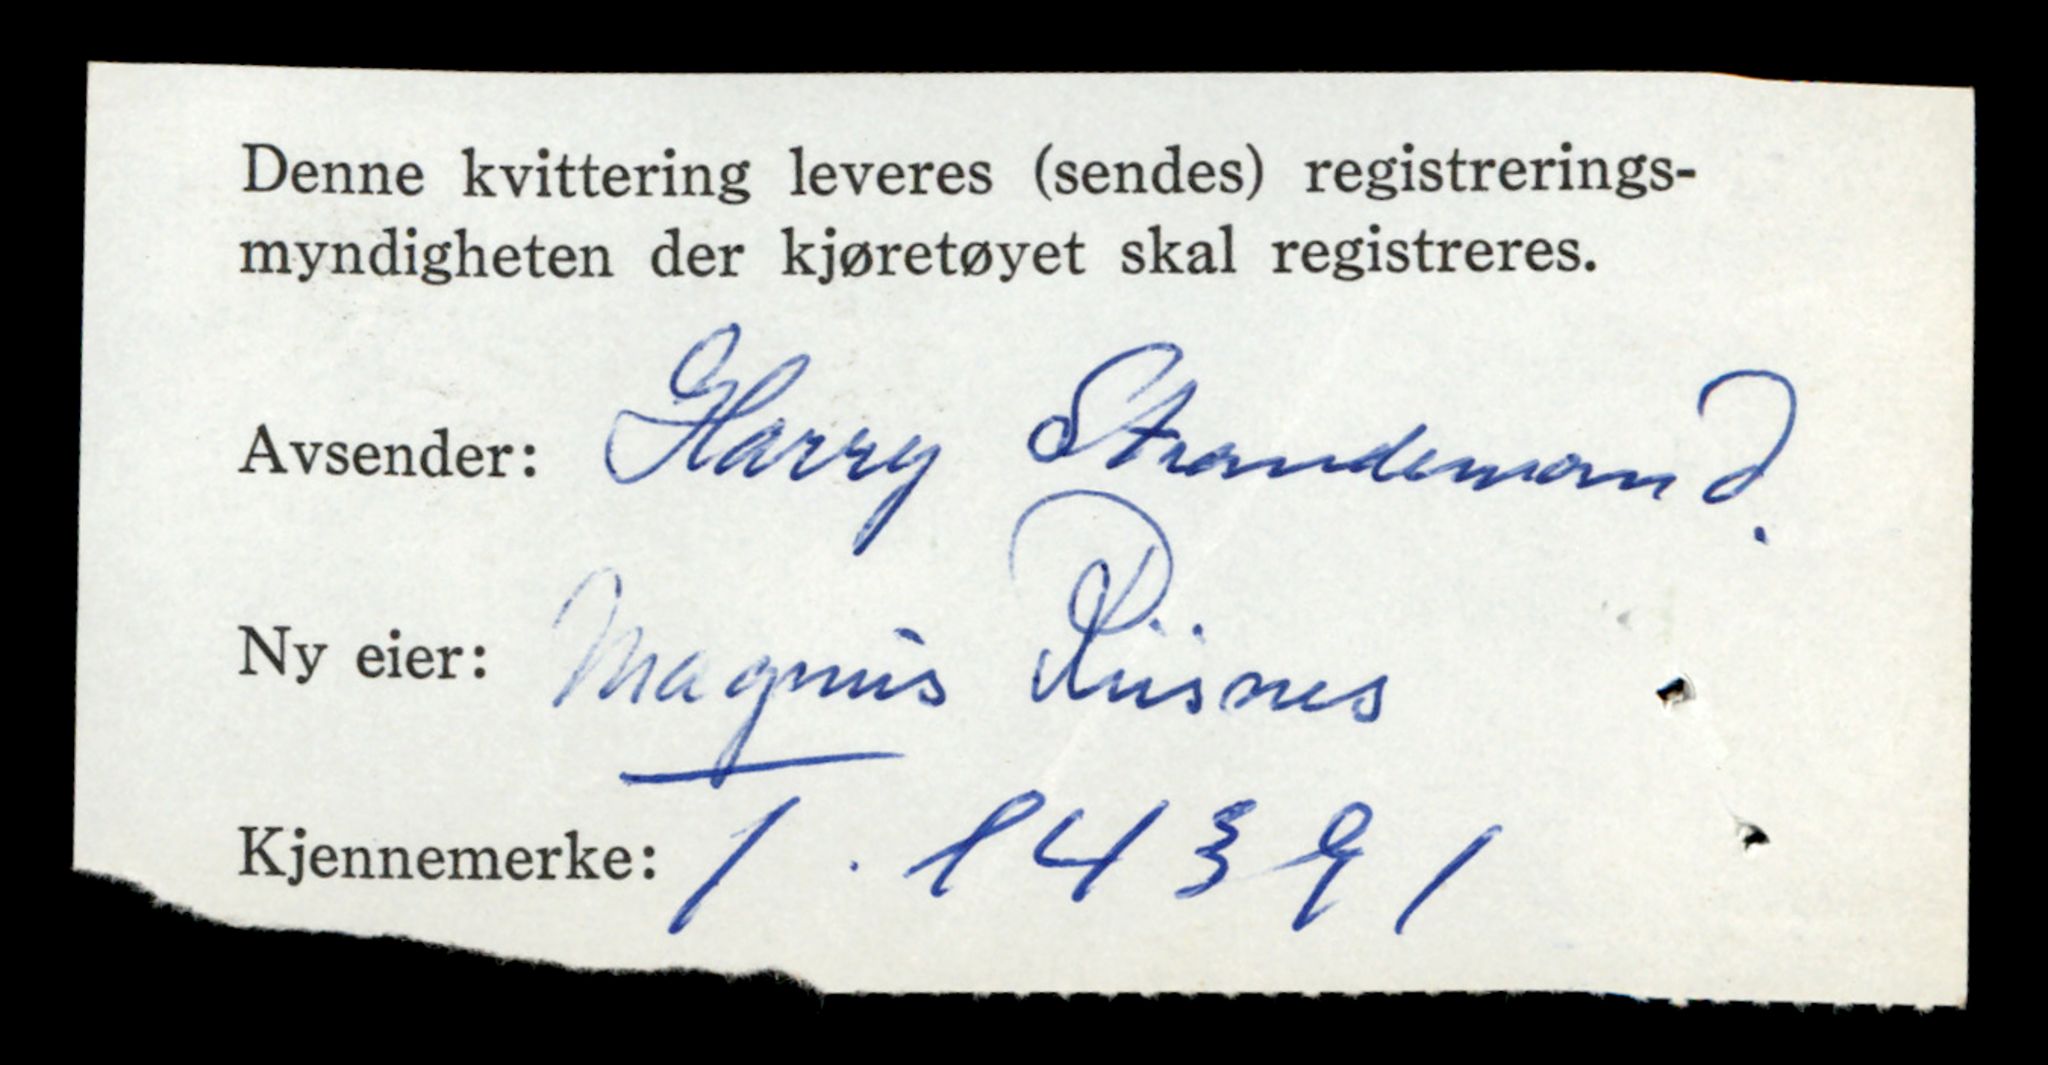 Denne kvittering leveres (sendes) registrerings-
myndigheten der kjøretøyet skal registreres.
Avsender: Harry Strandemand.
Ny eier: Magnus Riisnes
Kjennemerke: T. 14391